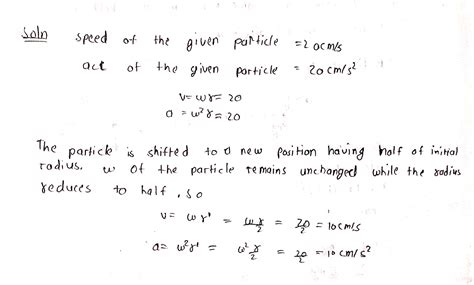 Soln speed of the given particle = 20cm/s
acc of the given particle = 20 cm/s²
v = ωr = 20
a = ω²r = 20
The particle is shifted to a new position having half of initial
radius. ω of the particle remains unchanged while the radius
reduces to half, so
v = ωr' = ωr/2 = 20/2 = 10cm/s
a = ω²r' = ω²r/2 = 20/2 = 10 cm/s²